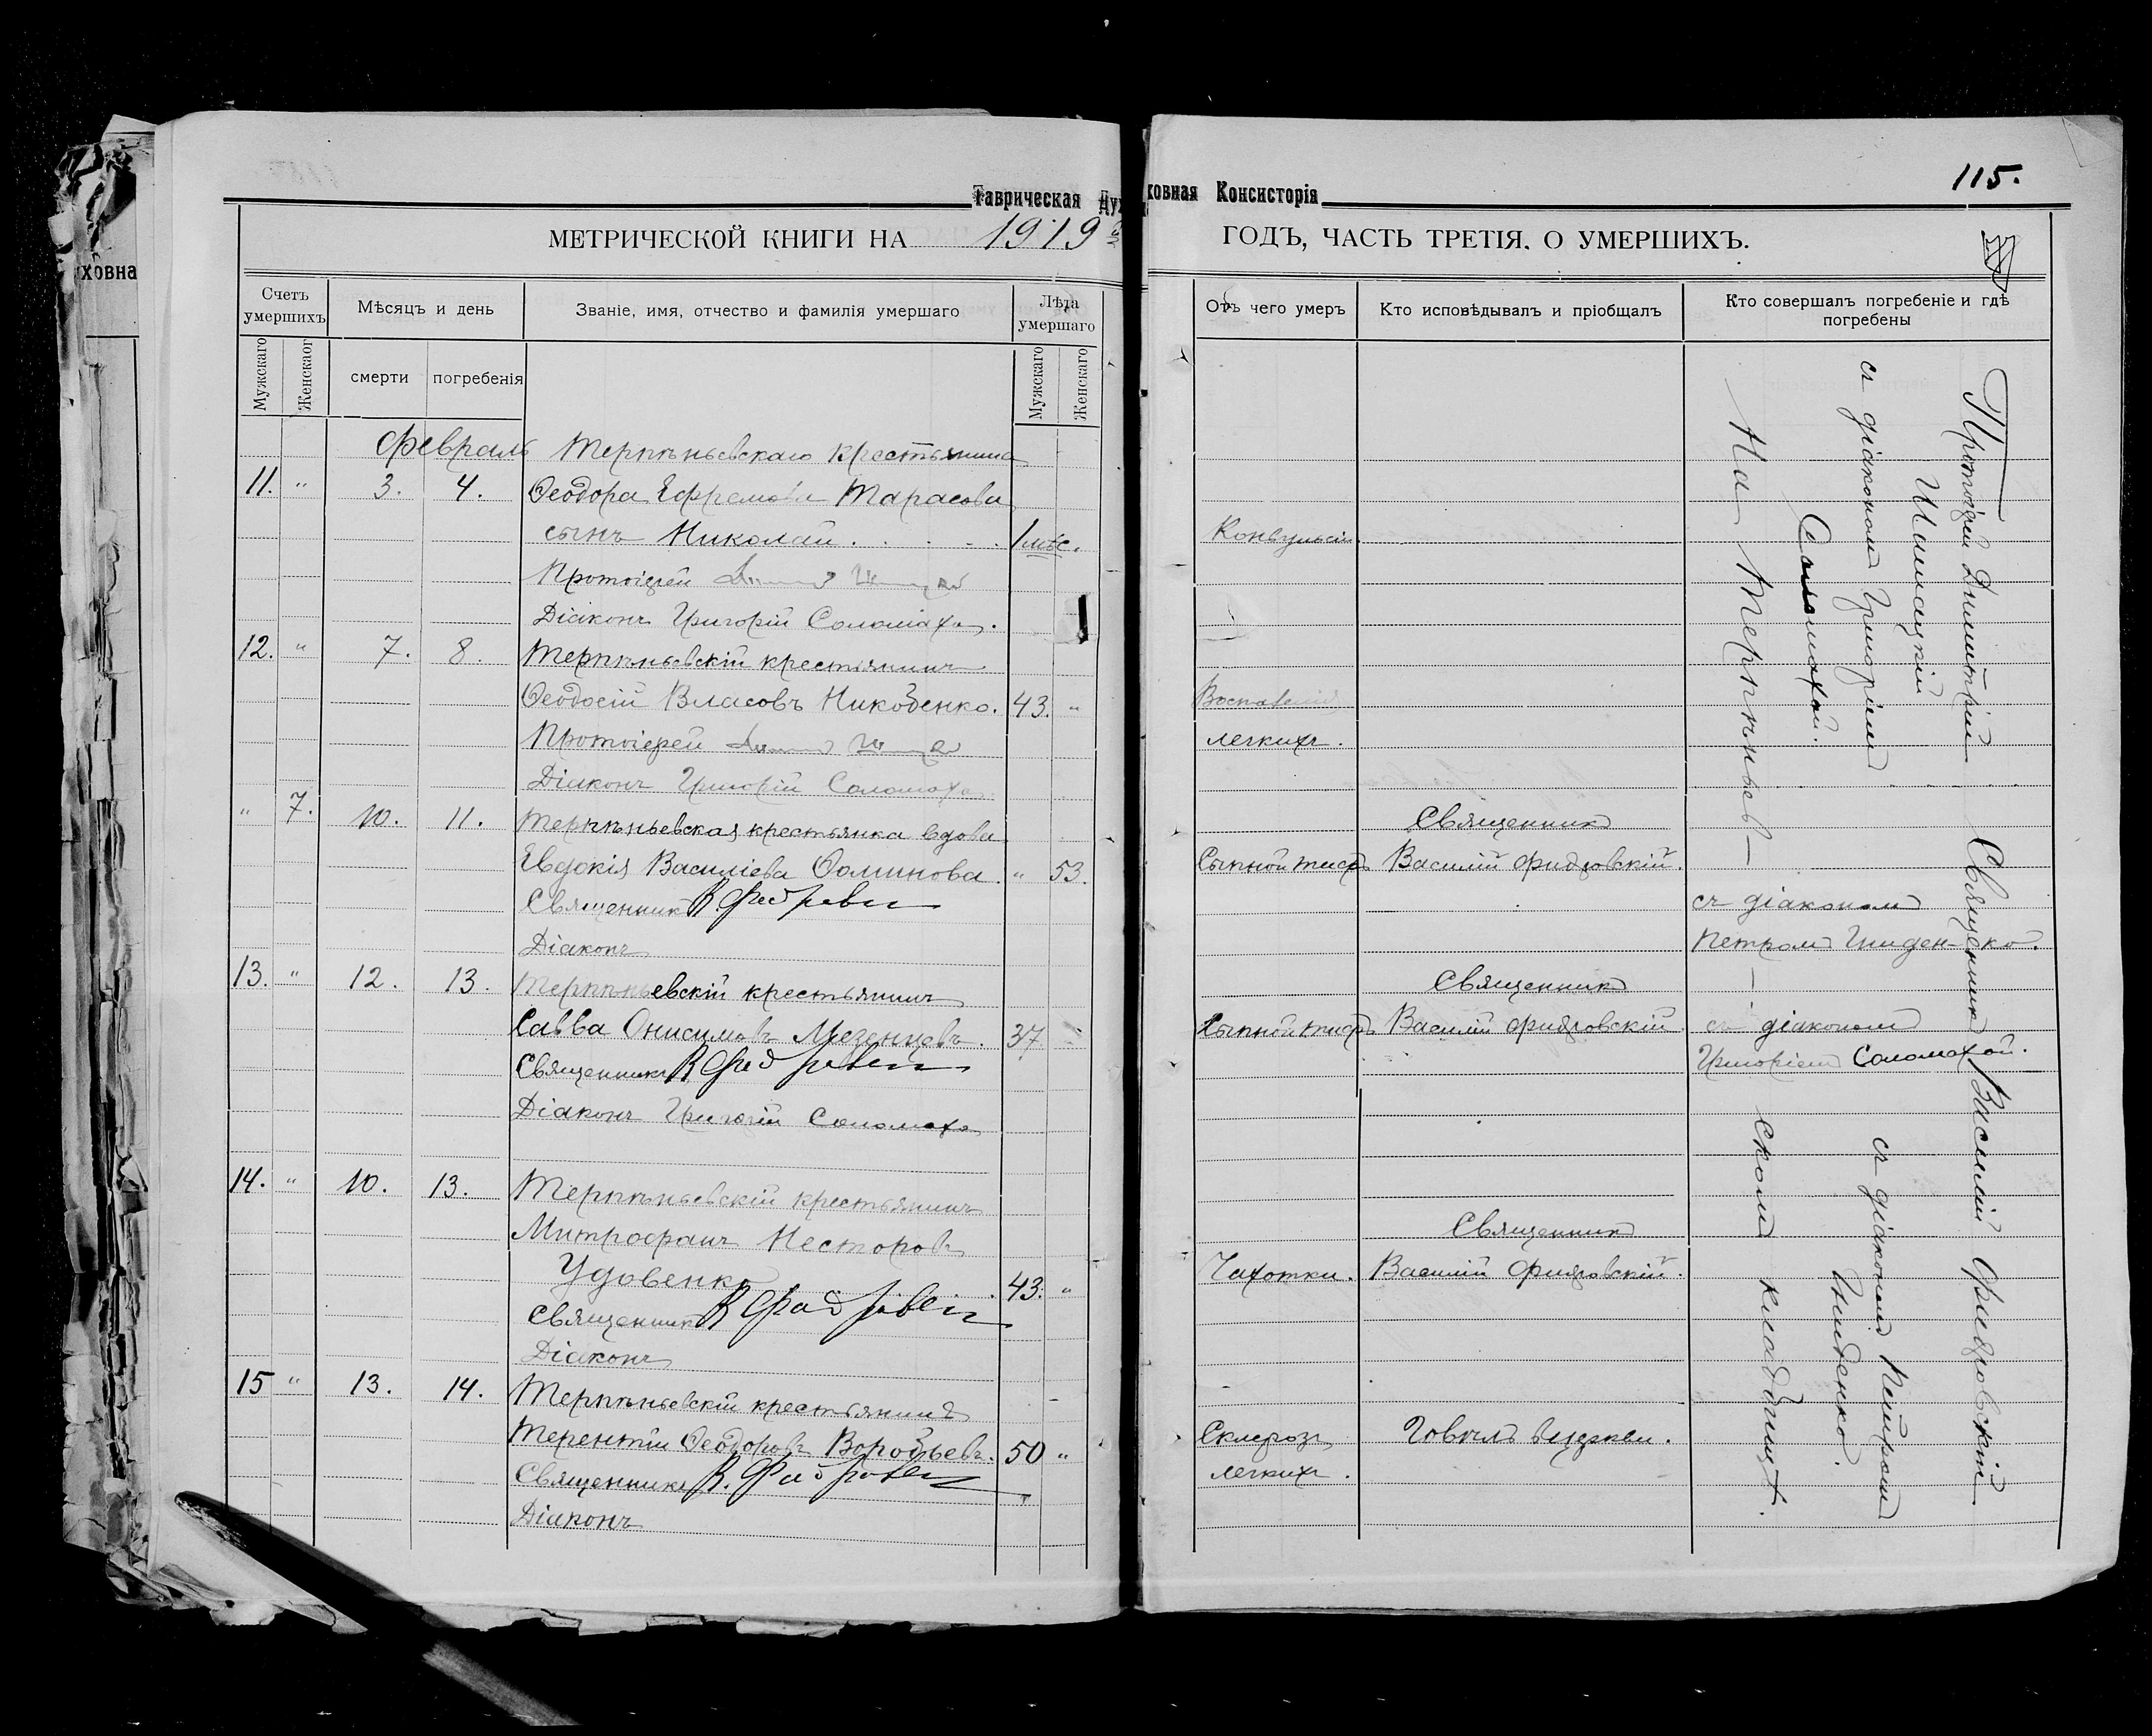 ховна
Таврическая Духовная Консисторія
115.
МЕТРИЧЕСКОЙ КНИГИ НА 1919 ГОДЪ, ЧАСТЬ ТРЕТІЯ, О УМЕРШИХЪ.
Счетъ умершихъ
Мѣсяцъ и день
Званіе, имя, отчество и фамилія умершаго
Лѣта умершаго
Мужскаго
Женскаог
смерти
погребенія
Мужскаго
Женскаго
Февраль Терпѣньевскаго крестьянина
11. " 3. 4. Ѳеодора Ефремова Тарасова
сынъ Николай . . . . 1 мѣс.
Протоіерей
Діаконъ Григорій Соломаха.
12. " 7. 8. Терпѣньевскій крестьянинъ
Ѳеодосій Власовъ Никоденко. 43. "
Протоіерей
Діаконъ Григорій Соломаха
" 7. 10. 11. Терпѣньевская крестьянка вдова
Евдокія Василіева Ѳоминова. " 53.
Священникъ
Діаконъ
13. " 12. 13. Терпѣньевскій крестьянинъ
Савва Онисимовъ Мезенцевъ. 37 "
Священникъ
Діаконъ Григорій Соломаха
14. " 10. 13. Терпѣньевскій крестьянинъ
Митрофанъ Несторовъ
Удовенко 43. "
Священникъ
Діаконъ
15 " 13. 14. Терпѣньевскій крестьянинъ
Терентій Ѳеодоровъ Воробьевъ. 50 "
Священникъ
Діаконъ
Отъ чего умеръ
Кто исповѣдывалъ и пріобщалъ
Кто совершалъ погребеніе и гдѣ погребены
Конвульсіи.
Воспаленія
легкихъ.
Священникъ
Сыпной тифъ Василій
съ діакономъ
Петромъ Гниден-ко.
Священникъ
Сыпной тифъ Василій
съ діакономъ
Григоріемъ Соломахой.
Священникъ
Чахотки. Василій
Склерозъ Говѣлъ въ церкви.
легкихъ.
Протоіерей Димитрій
съ діакономъ Григоріемъ
Соломахой.
На Терпѣньев-
Священникъ Василій
съ діакономъ Петромъ
Гниденко.
скомъ кладбищѣ.